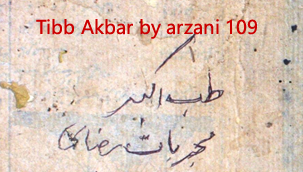 Tibb Akbar by arzani 109
طب اکبر
مجربات رضائی